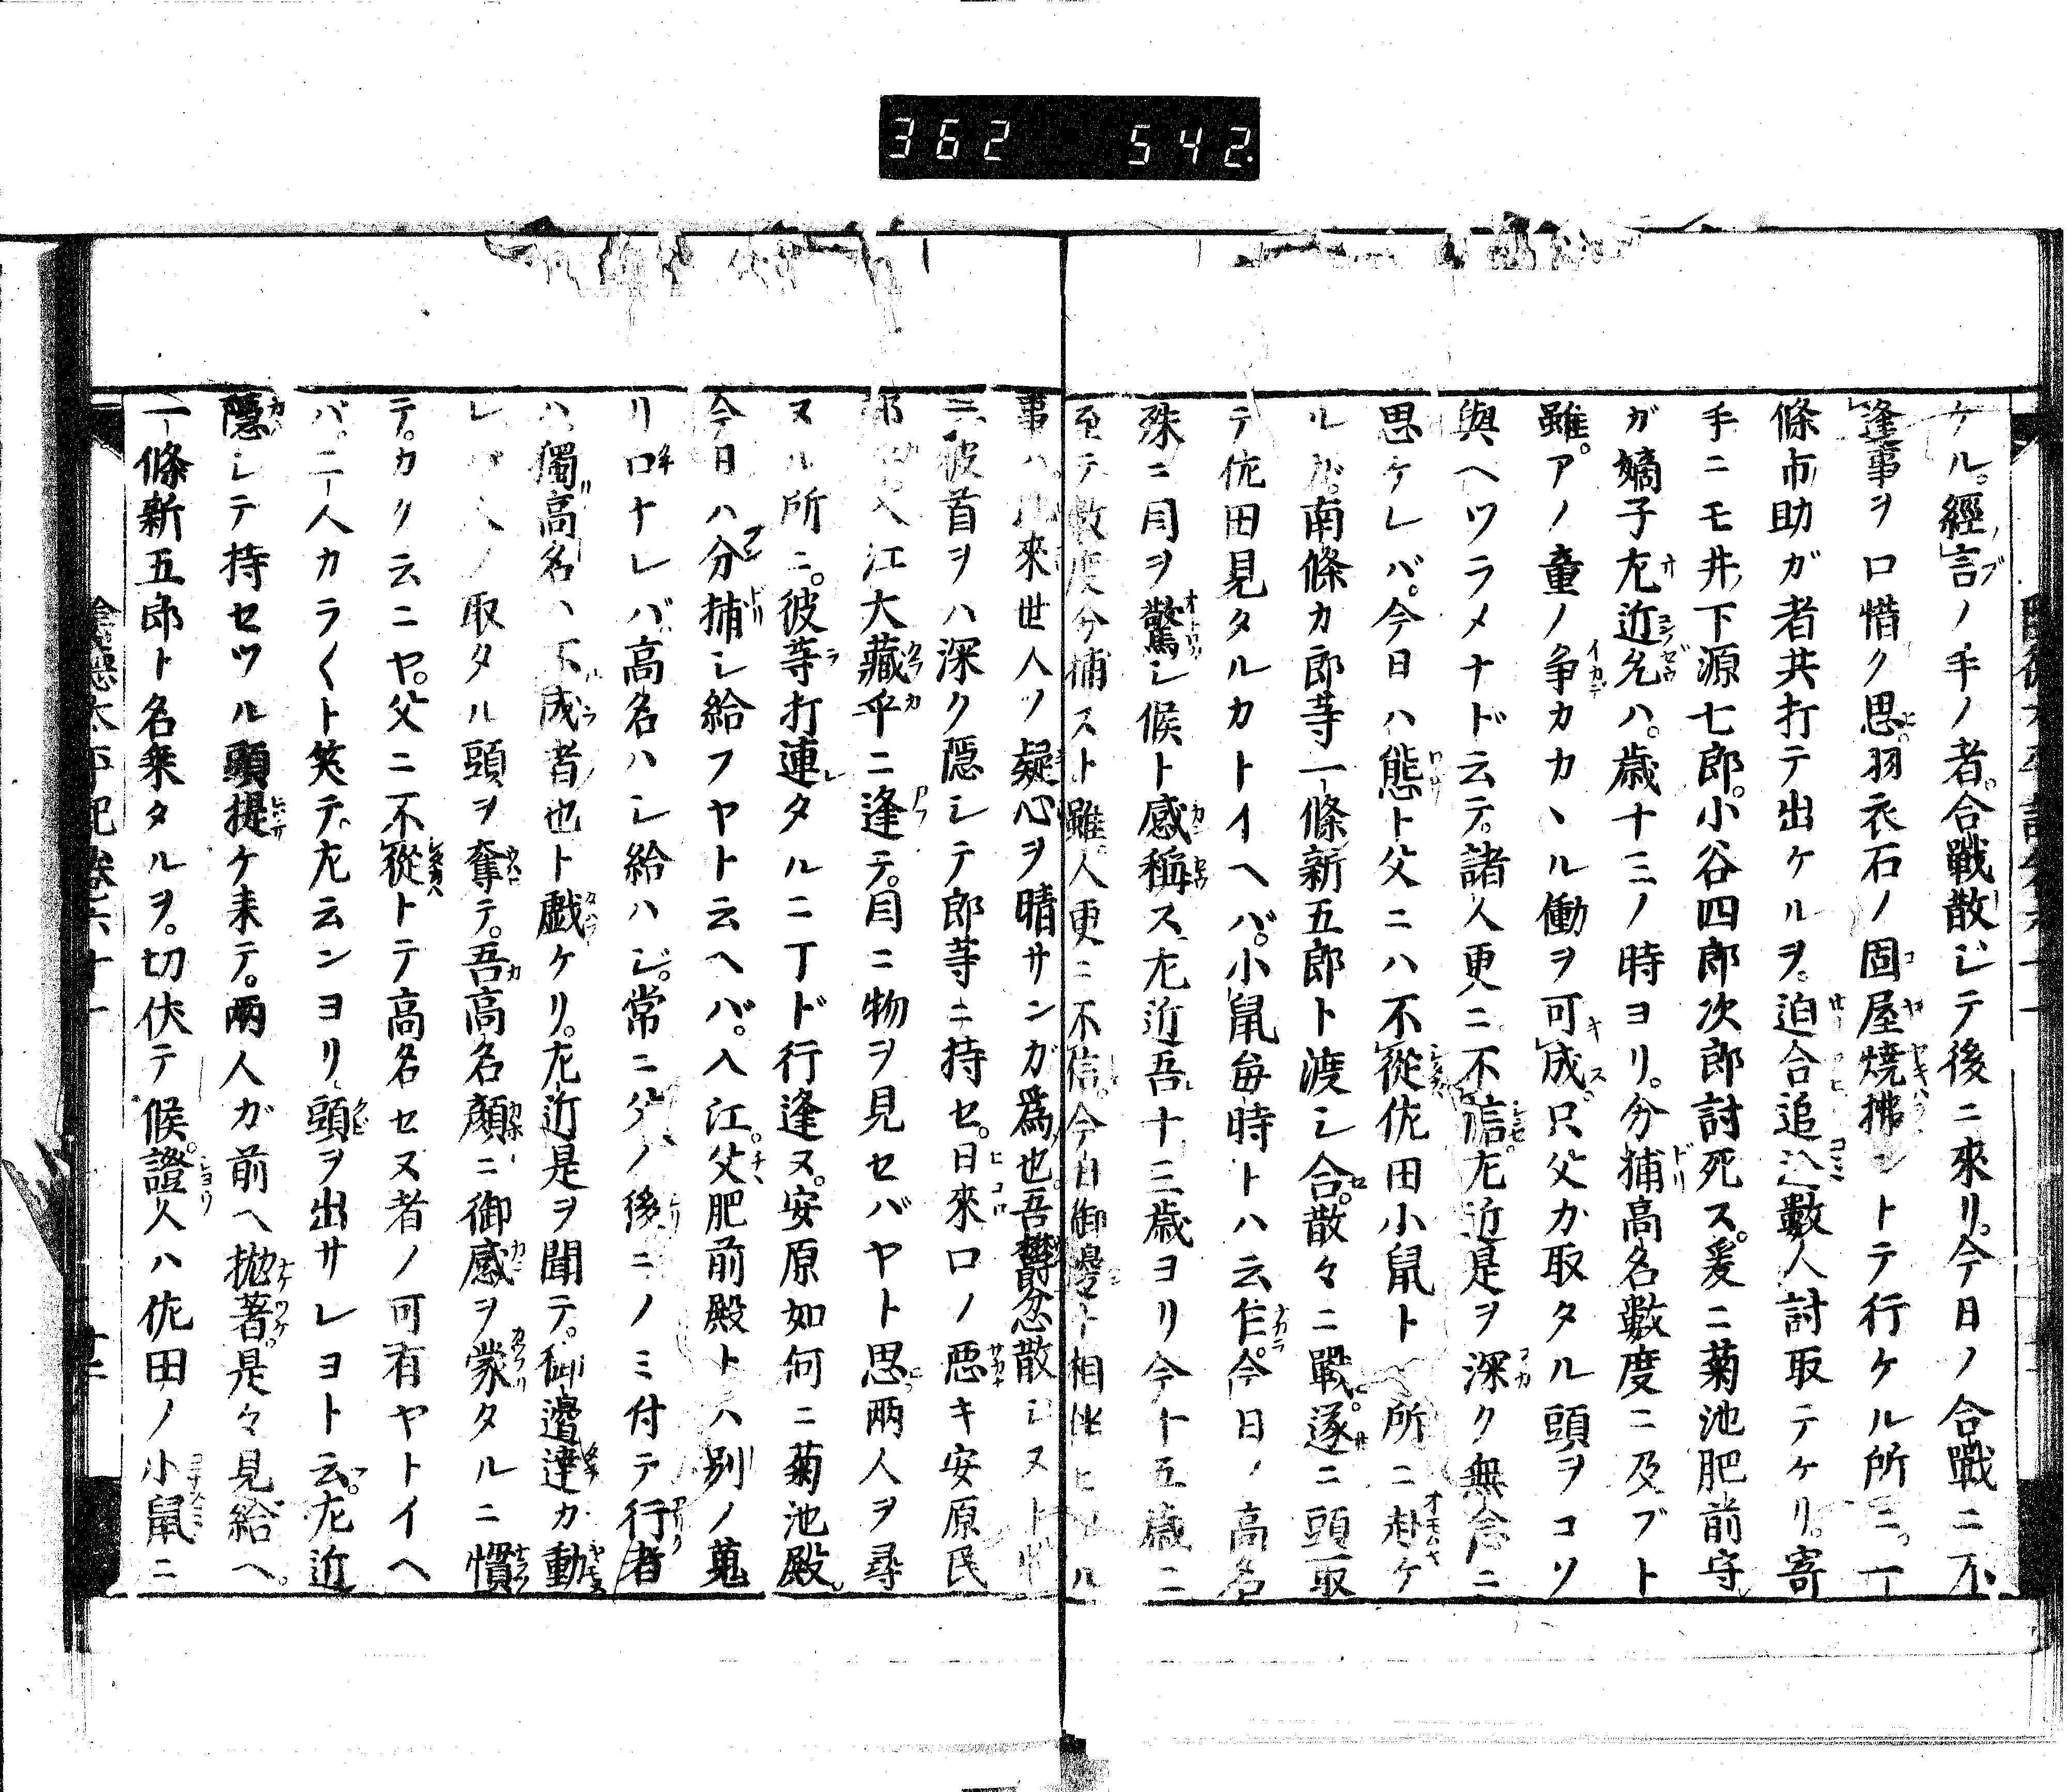 362 542.
ケル。經言ノ手ノ者。合戰散シテ後ニ來リ。今日ノ合戰ニ不
逢事ヲ口惜ク思。羽衣石ノ固屋燒拂ントテ行ケル所ニ。一
條市助ガ者共打テ出ケルヲ。追合追込數人討取テケリ。寄
手ニモ井下源七郎。小谷四郎次郎討死ス。爰ニ菊池肥前守
ガ嫡子左近允ハ。歳十三ノ時ヨリ。分捕高名數度ニ及ブト
雖。アノ童ノ争カカヽル働ヲ可成。只父カ取タル頭ヲコソ
與ヘツラメナド云テ。諸人更ニ不信。左近是ヲ深ク無念ニ
思ケレバ。今日ハ態ト父ニハ不從。佐田小鼠ト一所ニ赴ケ
ルガ。南條カ郎等一條新五郎ト渡シ合。散々ニ戰。遂ニ頭取
テ佐田見タルカトイヘバ。小鼠毎時トハ云乍。今日ノ高名
殊ニ目ヲ驚シ候ト感稱ス。左近吾十三歳ヨリ今十五歳ニ
至テ數度分捕スト雖。人更ニ不信。今日御邊ト相伴ヒツル
事ハ。來世人ノ疑心ヲ晴サンガ爲也。吾欝忿散シヌト
ニ彼首ヲハ深ク隱シテ郎等ニ持セ。日來口ノ惡キ安原民
部。入江大藏丞ニ逢テ。目ニ物ヲ見セバヤト思。兩人ヲ尋
ヌル所ニ。彼等打連タルニ丁ド行逢ヌ。安原如何ニ菊池殿。
今日ハ分捕シ給フヤト云ヘバ。入江。父肥前殿トハ別ノ蒐
リ口ナレバ。高名ハシ給ハジ。常ニ父ノ後ニノミ付テ行者
ハ。獨高名ハ不成者也ト戯ケリ。左近是ヲ聞テ。御邊達カ動
レバ人ノ取タル頭ヲ奪テ。吾高名顏ニ御感ヲ蒙タルニ慣
テ。カク云ニヤ。父ニ不從トテ高名セヌ者ノ可有ヤトイヘ
バ。二人カラ〱ト笑テ。左云ンヨリ頭ヲ出サレヨト云。左近
隱シテ持セツル頭提ケ来テ。兩人ガ前ヘ抛著。是々見給ヘ。
一條新五郎ト名乘タルヲ。切伏テ候。證人ハ佐田ノ小鼠ニ
陰德太平記卷六十一